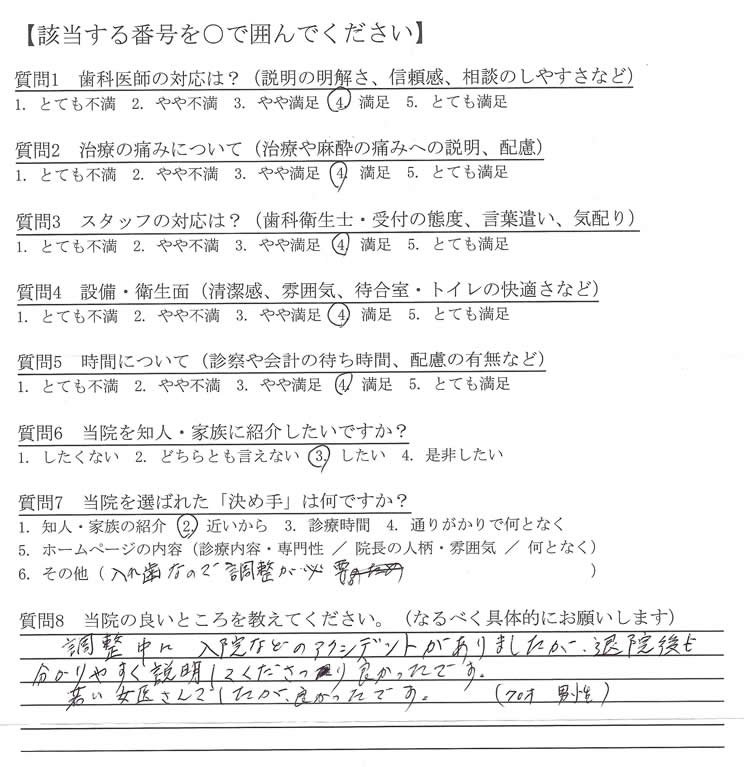 【該当する番号を○で囲んでください】
質問1 歯科医師の対応は?(説明の明解さ、信頼感、相談のしやすさなど)
1. とても不満 2. やや不満 3. やや満足 4. 満足 5. とても満足
質問2 治療の痛みについて(治療や麻酔の痛みへの説明、配慮)
1. とても不満 2. やや不満 3. やや満足 4. 満足 5. とても満足
質問3 スタッフの対応は?(歯科衛生士・受付の態度、言葉遣い、気配り)
1. とても不満 2. やや不満 3. やや満足 4. 満足 5. とても満足
質問4 設備・衛生面(清潔感、雰囲気、待合室・トイレの快適さなど)
1. とても不満 2. やや不満 3. やや満足 4. 満足 5. とても満足
質問5 時間について(診察や会計の待ち時間、配慮の有無など)
1. とても不満 2. やや不満 3. やや満足 4. 満足 5. とても満足
質問6 当院を知人・家族に紹介したいですか?
1. したくない 2. どちらとも言えない 3. したい 4. 是非したい
質問7 当院を選ばれた「決め手」は何ですか?
1. 知人・家族の紹介 2. 近いから 3. 診療時間 4. 通りがかりで何となく
5. ホームページの内容(診療内容・専門性 / 院長の人柄・雰囲気 / 何となく)
6. その他(入れ歯なので調整が必要 )
質問8 当院の良いところを教えてください。(なるべく具体的にお願いします)
調整中に 入院などのアクシデントがありましたが、退院後も
分かりやすく説明してくださり良かったです。
若い女医さんでしたが、良かったです。 (70才 男性)